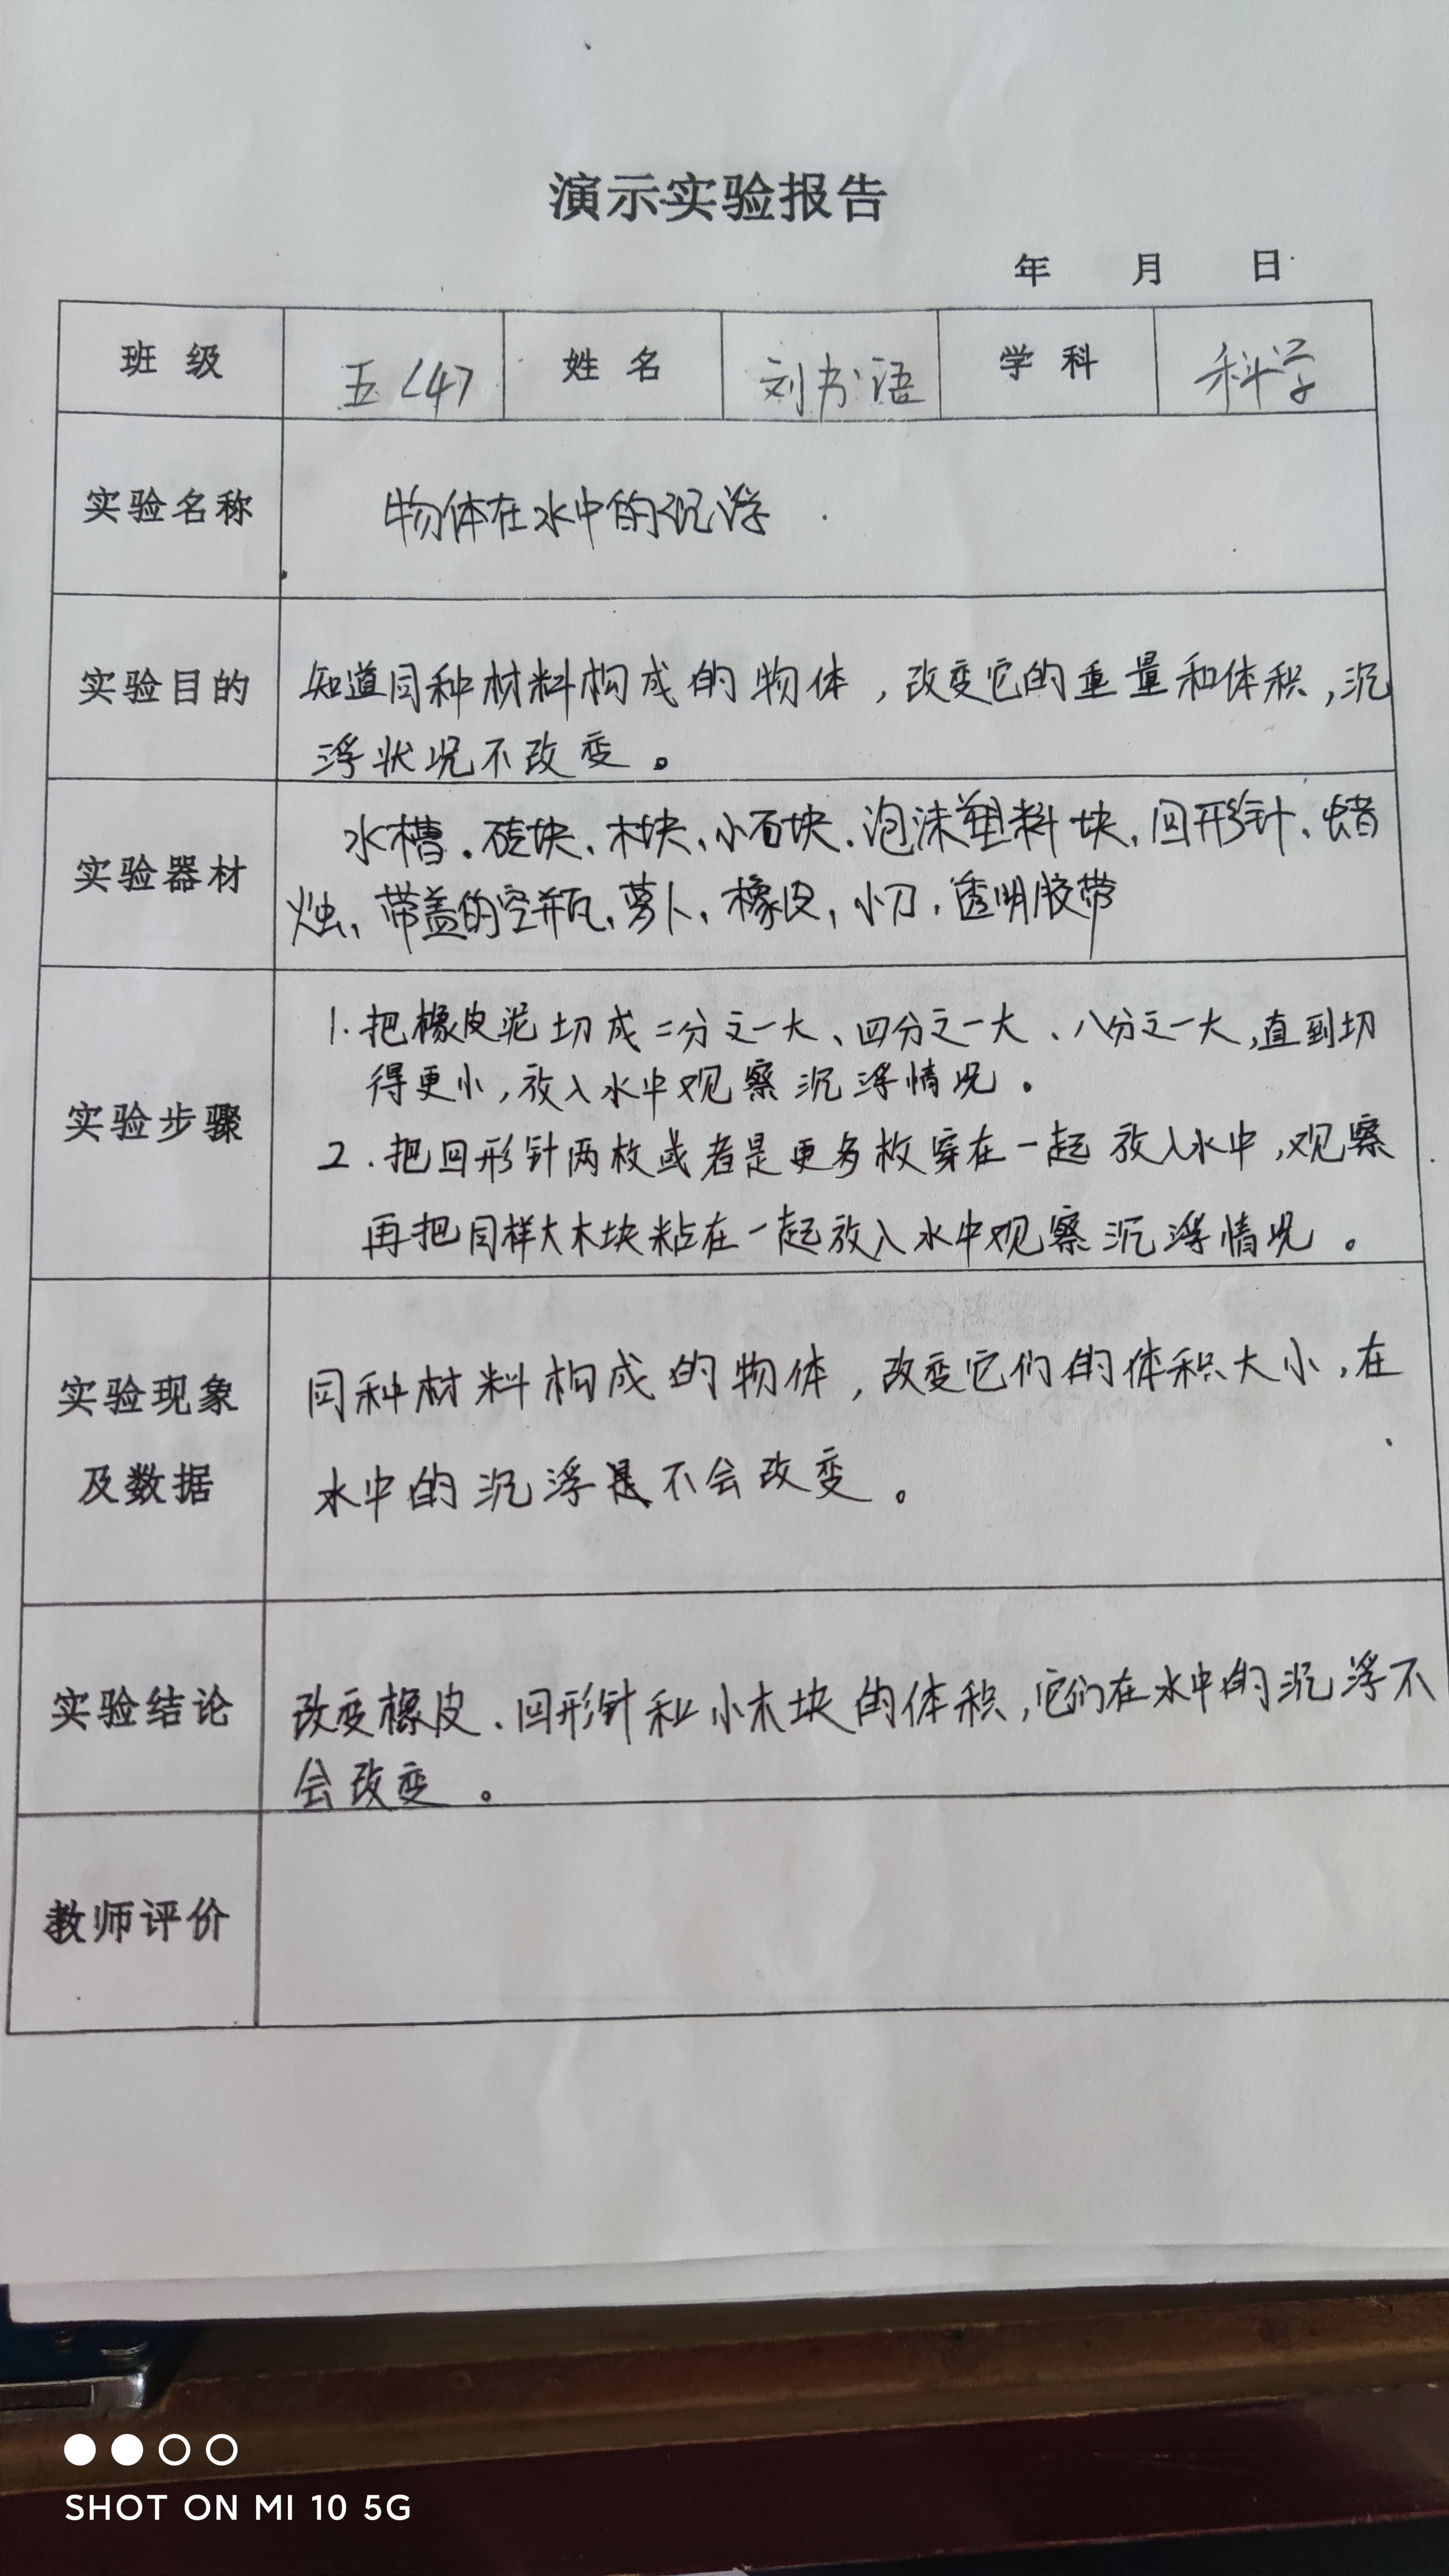 演示实验报告
年 月 日
班 级 五<4> 姓 名 刘书语 学 科 科学
实验名称 物体在水中的沉浮
实验目的 知道同种材料构成的物体,改变它的重量和体积,沉
浮状况不改变。
实验器材 水槽、砖块、木块、小石块、泡沫塑料块、回形针、蜡
烛、带盖的空瓶、萝卜、橡皮,小刀,透明胶带
实验步骤 1.把橡皮泥切成二分之一大、四分之一大、八分之一大,直到切
得更小,放入水中观察沉浮情况。
2.把回形针两枚或者是更多枚穿在一起放入水中,观察
再把同样大木块粘在一起放入水中观察沉浮情况。
实验现象 同种材料构成的物体,改变它们的体积大小,在
及数据 水中的沉浮是不会改变。
实验结论 改变橡皮、回形针和小木块的体积,它们在水中的沉浮不
会改变。
教师评价
SHOT ON MI 10 5G